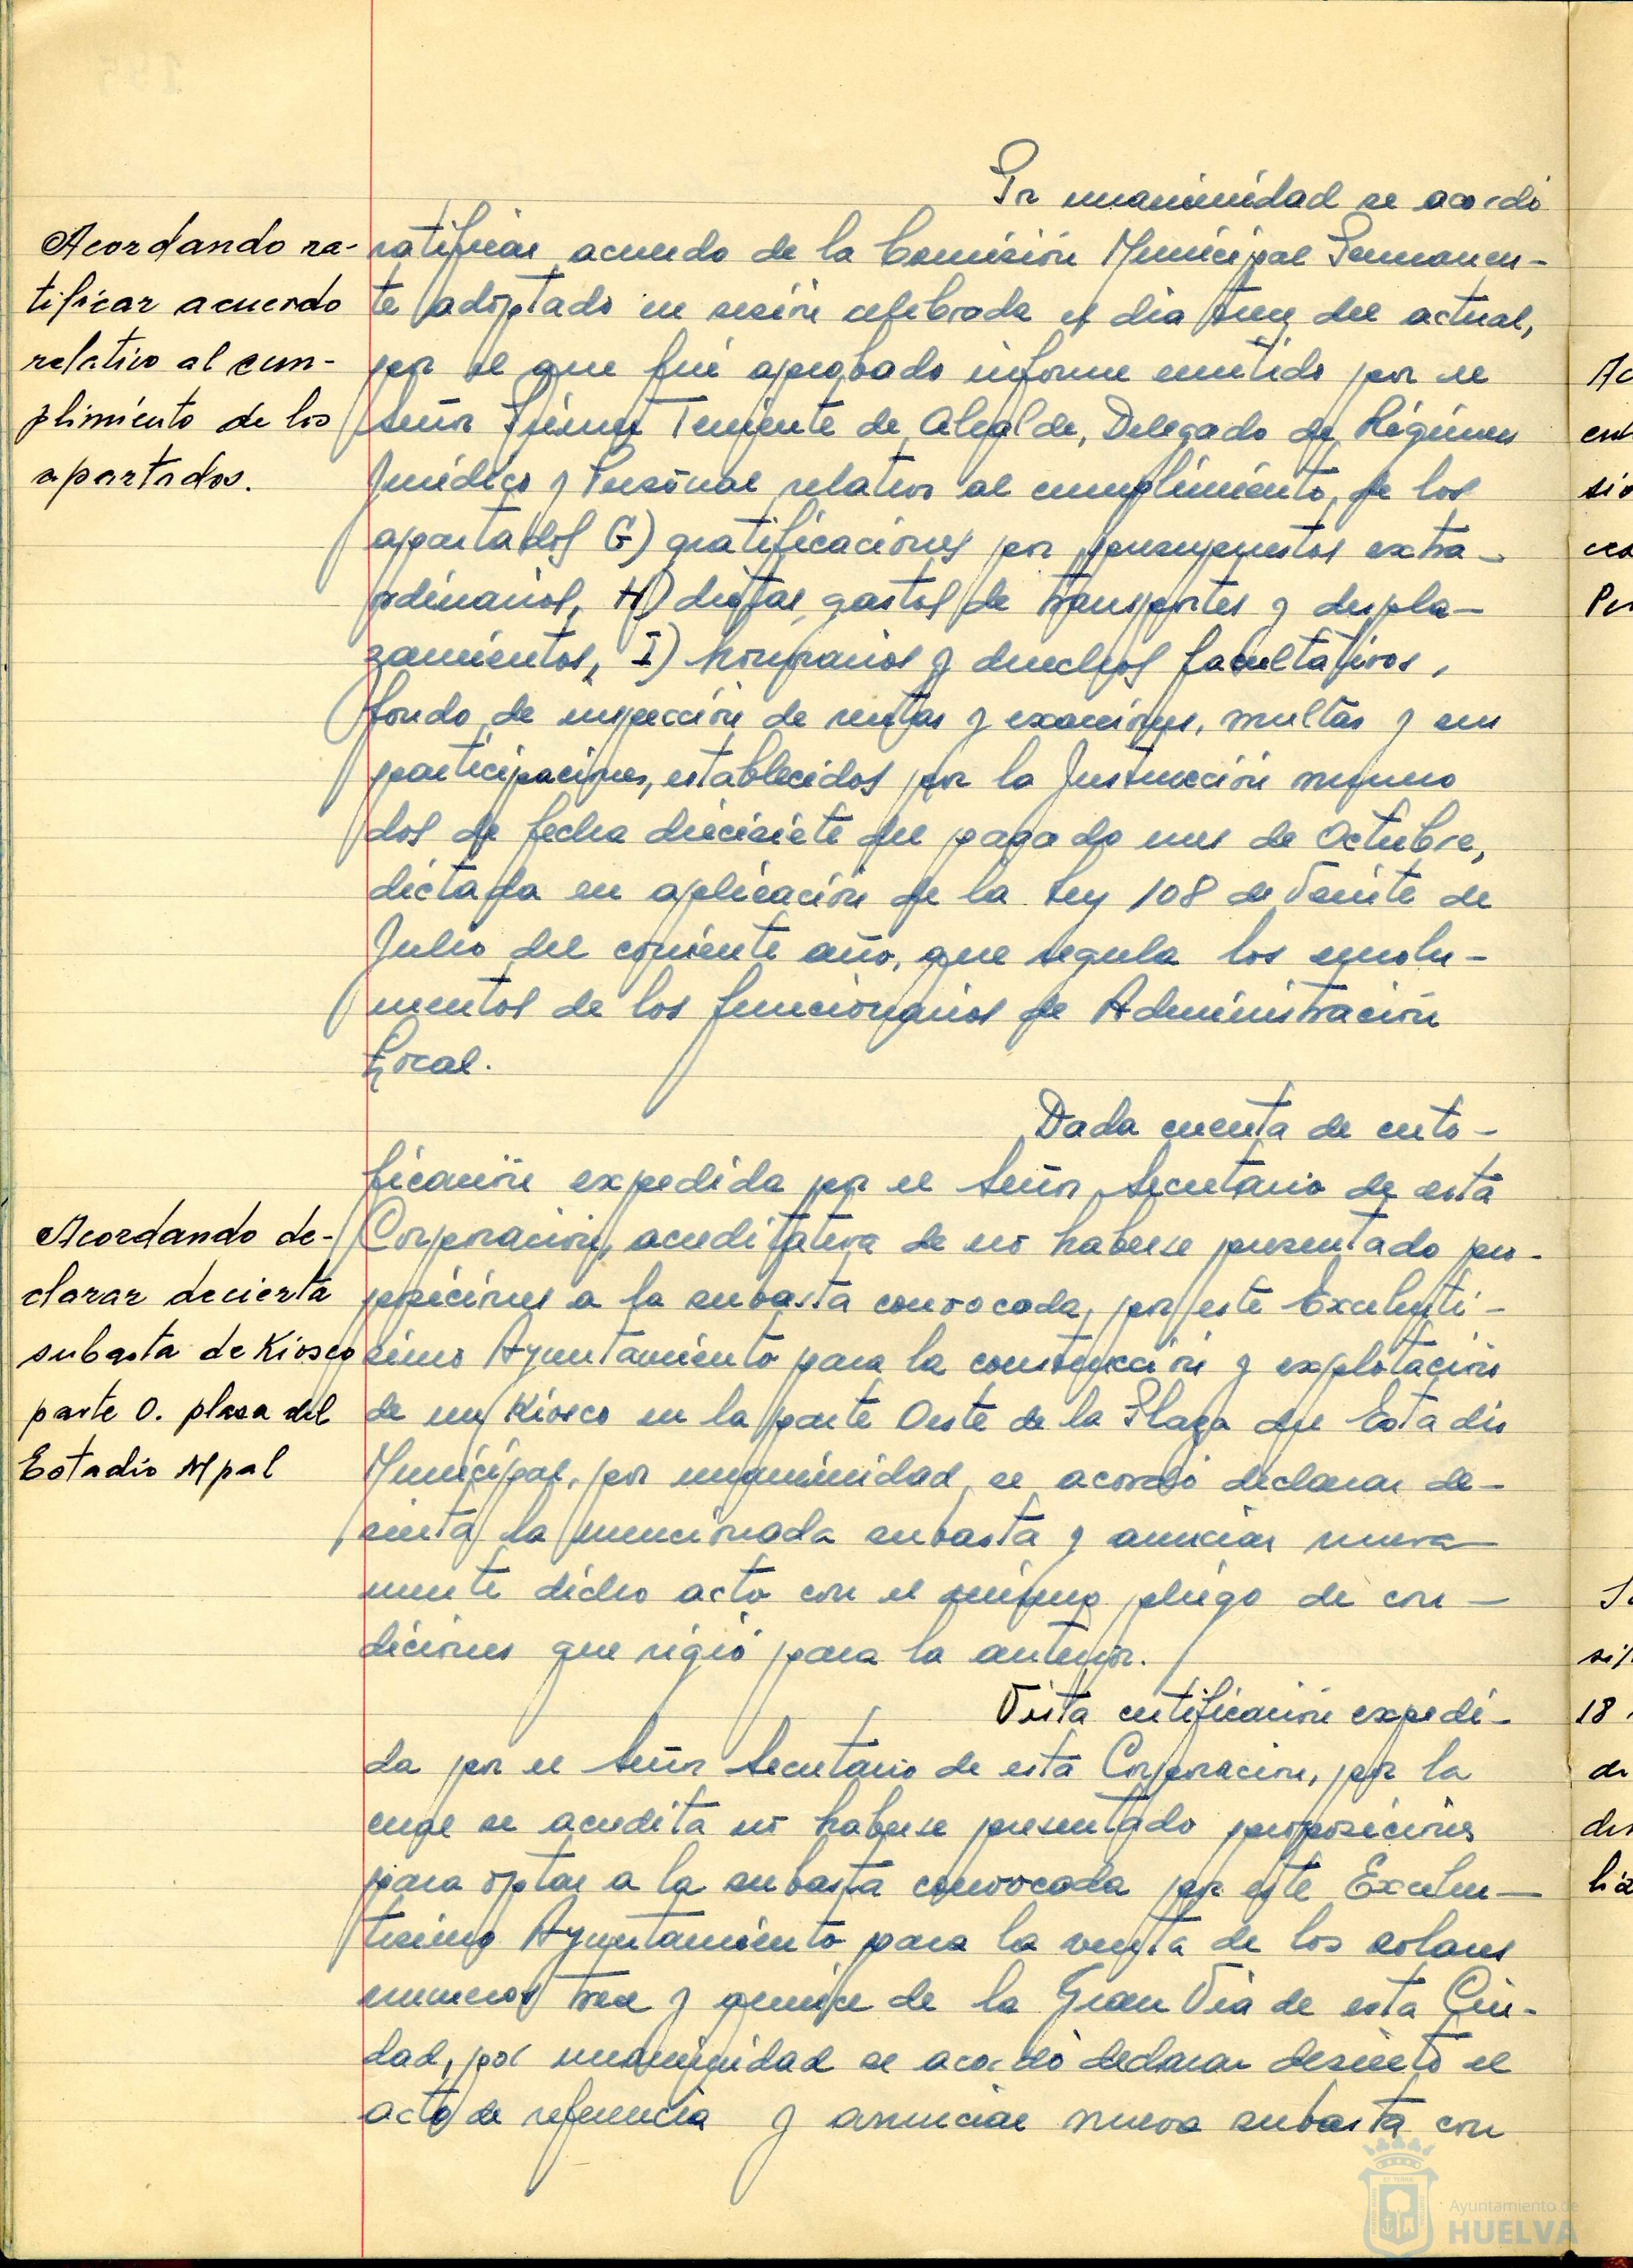 Por unanimidad se acordó
Acordando ra-
tificar acuerdo
relativo al cum-
plimiento de los
apartados.
ratificar acuerdo de la Comisión Municipal Permanen-
te adoptado en sesión celebrada el dia del actual,
por el que fué aprobado informe emitido por el
Señor Primer Teniente de Alcalde, Delegado de Régimen
Jurídico y Personal relativo al cumplimiento de los
apartados G) gratificaciones por presupuestos extra-
ordinarios, H) dietas, gastos de transportes y despla-
zamientos, I) honorarios y derechos facultativos,
fondo de inspección de rentas y exacciones, multas y sus
participaciones, establecidos por la Instrucción número
dos de fecha diecisiete del pasado mes de Octubre,
dictada en aplicación de la Ley 108 de Veinte de
Julio del corriente año, que regula los emolu-
mentos de los funcionarios de Administración
Local.
Dada cuenta de certi-
ficación expedida por el Señor Secretario de esta
Acordando de-
clarar decierta
subasta de Kiosco
parte O. plaza del
Estadio Mpal
Corporación, acreditativa de no haberse presentado pro-
posiciones a la subasta convocada, por este Excelenti-
simo Ayuntamiento para la construcción y explotación
de un Kiosco en la parte Oeste de la Plaza del Estadio
Municipal, por unanimidad, se acordó declarar de-
sierta la mencionada subasta y anunciar nueva
mente dicho acto con el mismo pliego de con-
diciones que rigió para la anterior.
Vista certificación expedi-
da por el Señor Secretario de esta Corporación, por la
cual se acredita no haberse presentado proposiciones
para optar a la subasta convocada por este Excelen-
tisimo Ayuntamiento para la venta de los solares
numeros trece y quince de la Gran Via de esta Ciu-
dad, por unanimidad se acordó declarar desierto el
acto de referencia y anunciar nueva subasta con
Ayuntamiento de
HUELVA